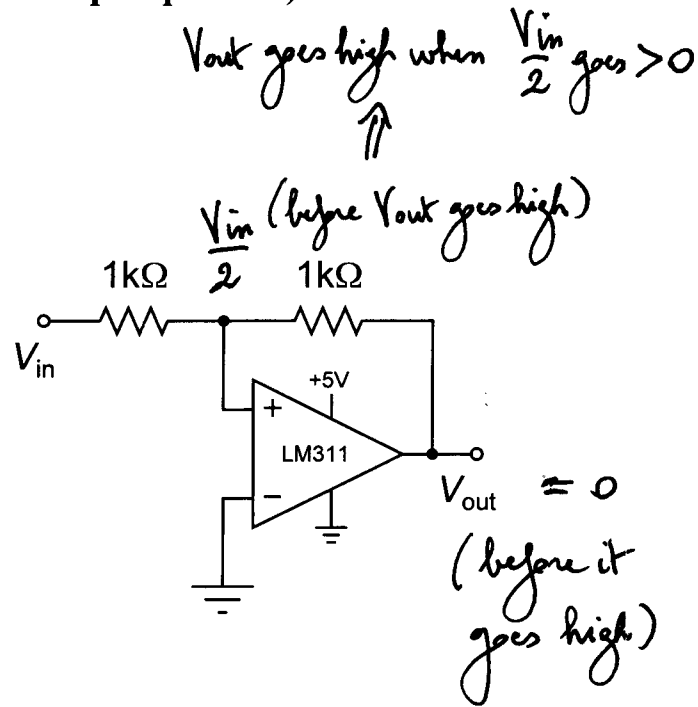 Vout goes high when Vin/2 goes > 0
⇑
Vin/2 (before Vout goes high)
1kΩ 1kΩ
Vin
+5V
+
LM311
−
Vout = 0
(before it
goes high)